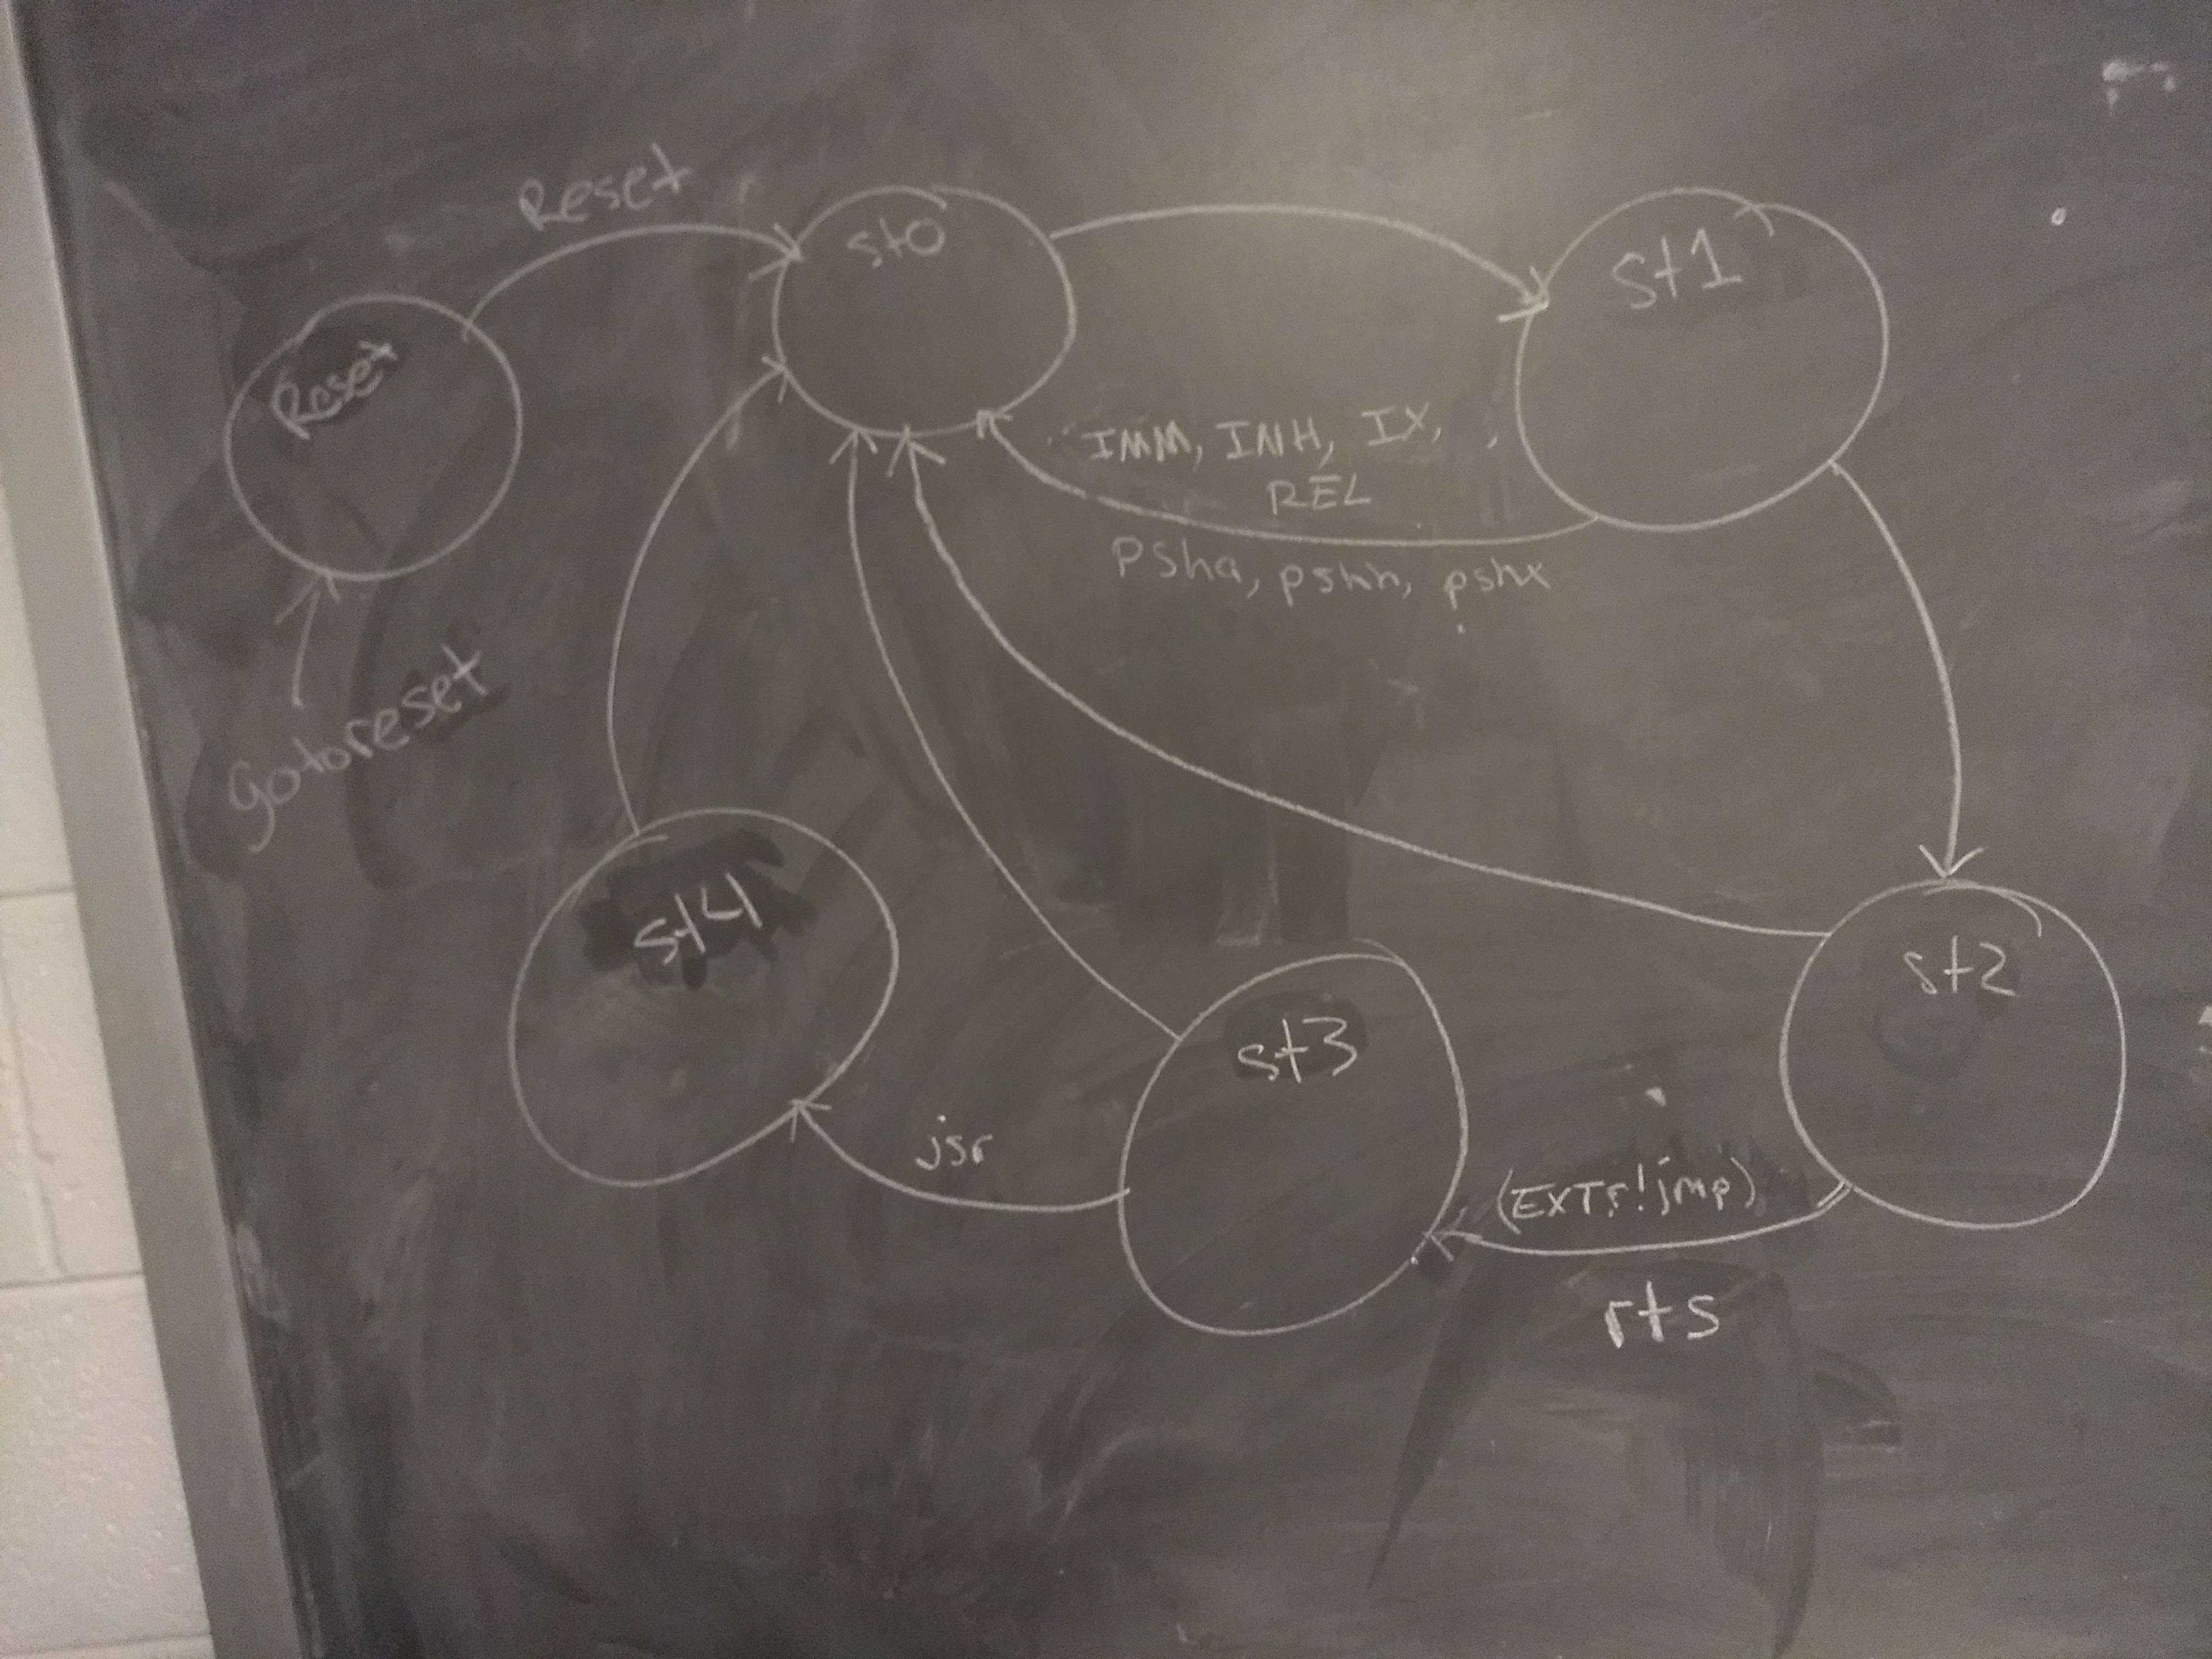 Reset
st0
st1
Reset
IMM, INH, IX, ,
REL
psha, pshh, pshx
Gotoreset
st4
st2
st3
jsr
(EXT,!jmp)
rts